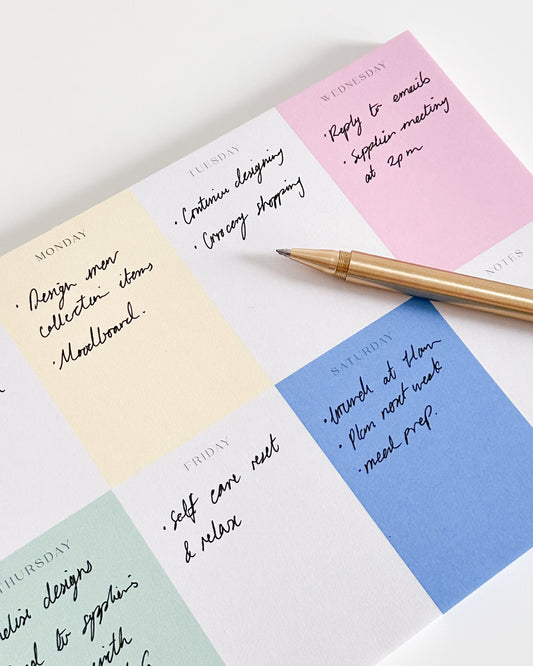 MONDAY
· Design new
collection items
· Moodboard.
TUESDAY
· Continue designing
· Grocery shopping
WEDNESDAY
· Reply to emails
· Supplier meeting
at 2pm
THURSDAY
designs
to suppliers
with
FRIDAY
· Self care reset
& relax
SATURDAY
· Brunch at 11am
· Plan next week
· meal prep.
NOTES